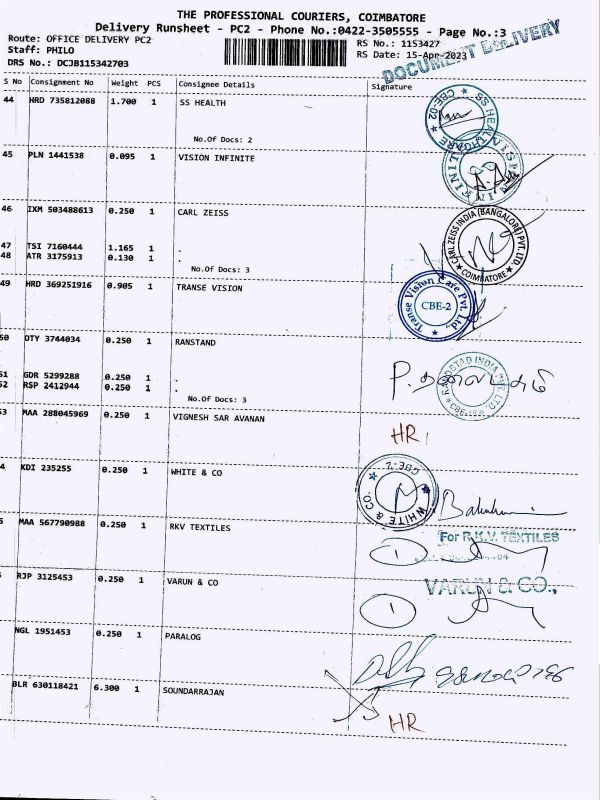 THE PROFESSIONAL COURIERS, COIMBATORE
Delivery Runsheet - PC2 - Phone No.:0422-3505555 - Page No.:3
Route: OFFICE DELIVERY PC2
RS No.: 1153427
Staff: PHILO
RS Date: 15-Apr-2023
DRS No.: DCJB115342703
DOCUMENT DELIVERY
S No Consignment No Weight PCS Consignee Details Signature
44 HRD 735812088 1.700 1 SS HEALTH
SS HEALTHCARE * CBE-02 *
No.Of Docs: 2
45 PLN 1441538 0.095 1 VISION INFINITE
46 IXM 503488613 0.250 1 CARL ZEISS
CARL ZEISS INDIA (BANGALORE) PVT. LTD. * COIMBATORE *
47 TSI 7160444 1.165 1 .
48 ATR 3175913 0.130 1 .
No.Of Docs: 3
49 HRD 369251916 0.905 1 TRANSE VISION
Transe Vision Care Pvt. Ltd.,
CBE-2
50 OTY 3744034 0.250 1 RANSTAND
RANDSTAD INDIA PVT. LTD.
51 GDR 5299288 0.250 1 .
52 RSP 2412944 0.250 1 .
No.Of Docs: 3
53 MAA 288045969 0.250 1 VIGNESH SAR AVANAN
HR
4 KDI 235255 0.250 1 WHITE & CO
WHITE & CO. * CBE-2 *
5 MAA 567790988 0.250 1 RKV TEXTILES
For R.K.V. TEXTILES
1
RJP 3125453 0.250 1 VARUN & CO
VARUN & CO.,
1
NGL 1951453 0.250 1 PARALOG
BLR 630118421 6.300 1 SOUNDARRAJAN
HR